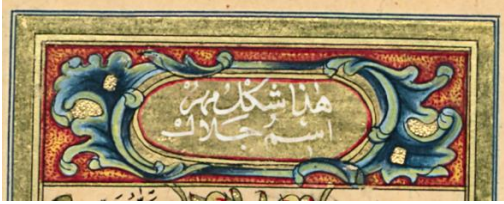 هذا شكل مهر
اسم جلالك